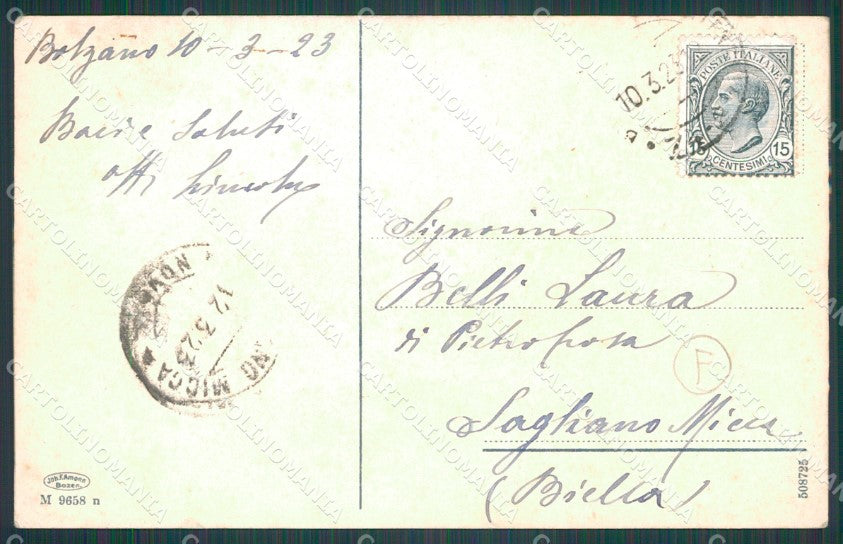 Bolzano 10-3-23
Baci e Saluti
aff
10.3.23
POSTE ITALIANE
15
CENTESIMI
15
Signorina
Belli Laura
di Pietro
F
Sagliano Micca
(Biella)
NOVA
12.3.23
NO MICCA
Joh. F. Amonn
Bozen.
M 9658 n
508725
CARTOLINOMANIA